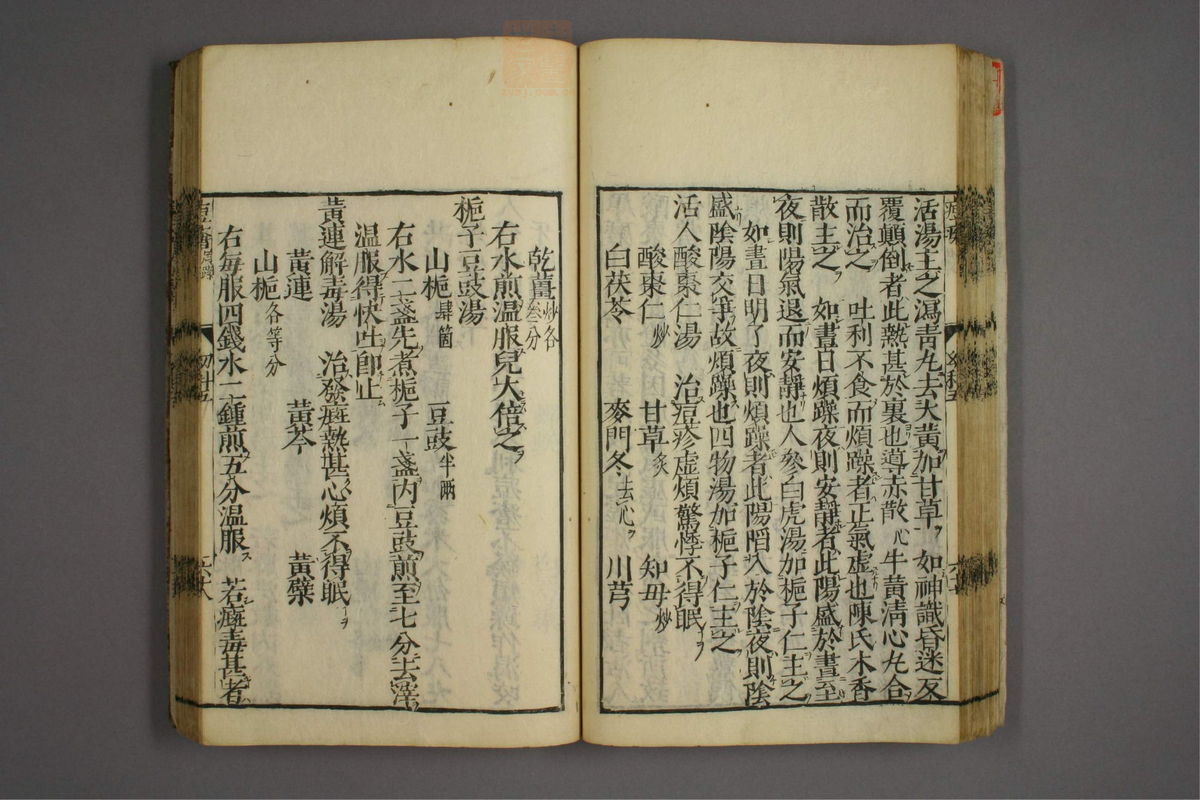 活湯主之瀉靑丸去大黃加甘草 如神識昏迷反
覆顚倒者此熱甚於裏也導赤散 牛黃淸心丸合
而治之 吐利不食而煩躁者正氣虚也陳氏木香
散主之 如晝日煩躁夜則安靜者此陽盛於晝至
夜則陽氣退而安靜也人參白虎湯加梔子仁主之
如晝日明了夜則煩躁者此陽陷入於陰夜則陰
盛陰陽交爭故煩躁也四物湯加梔子仁主之
活人酸棗仁湯 治痘疹虛煩驚悸不得眠
酸棗仁炒 甘草炙 知母炒
白茯苓 麥門冬去心 川芎
乾薑炒各叄分
右水煎温服兒大倍之
梔子豆豉湯
山梔肆箇 豆豉半兩
右水二盞先煮梔子一盞内豆豉煎至七分去滓
温服得快吐卽止
黃連解毒湯 治發癍熱甚心煩不得眠
黃連 黃芩 黃檗
山梔各等分
右每服四錢水二鍾煎五分温服 若癍毒甚者